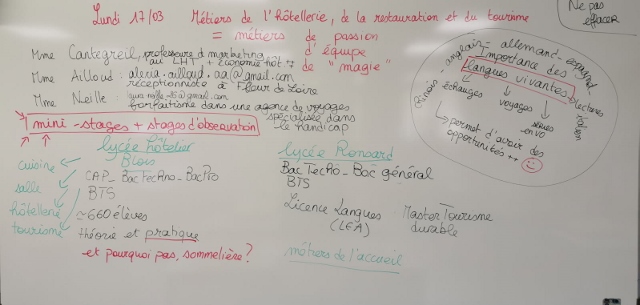 Ne pas
effacer
Lundi 17/03 Métiers de l'hôtellerie, de la restauration et du tourisme
= métiers de passion
d'équipe
de "magie"
Mme Cantegreil, professeure d'marketing
au LHT + économie hôt
Mme Ailloud :
réceptionniste à Fleur de Loire
Mme Neille :
forfaitiste dans une agence de voyages
spécialisée dans
le handicap
mini-stages + stages d'observation
anglais - allemand - espagnol
Importance des
langues vivantes
échanges
voyages
séries
en VO
lectures
italien
→ permet d'avoir des
opportunités ++
lycée hôtelier
Blois
cuisine
salle
hôtellerie
tourisme
CAP - Bac Techno - Bac Pro
BTS
~ 660 élèves
théorie et pratique
et pourquoi pas, sommelière?
lycée Ronsard
Bac Techno - Bac général
BTS
Licence Langues
(LEA)
Master Tourisme
durable
métiers de l'accueil